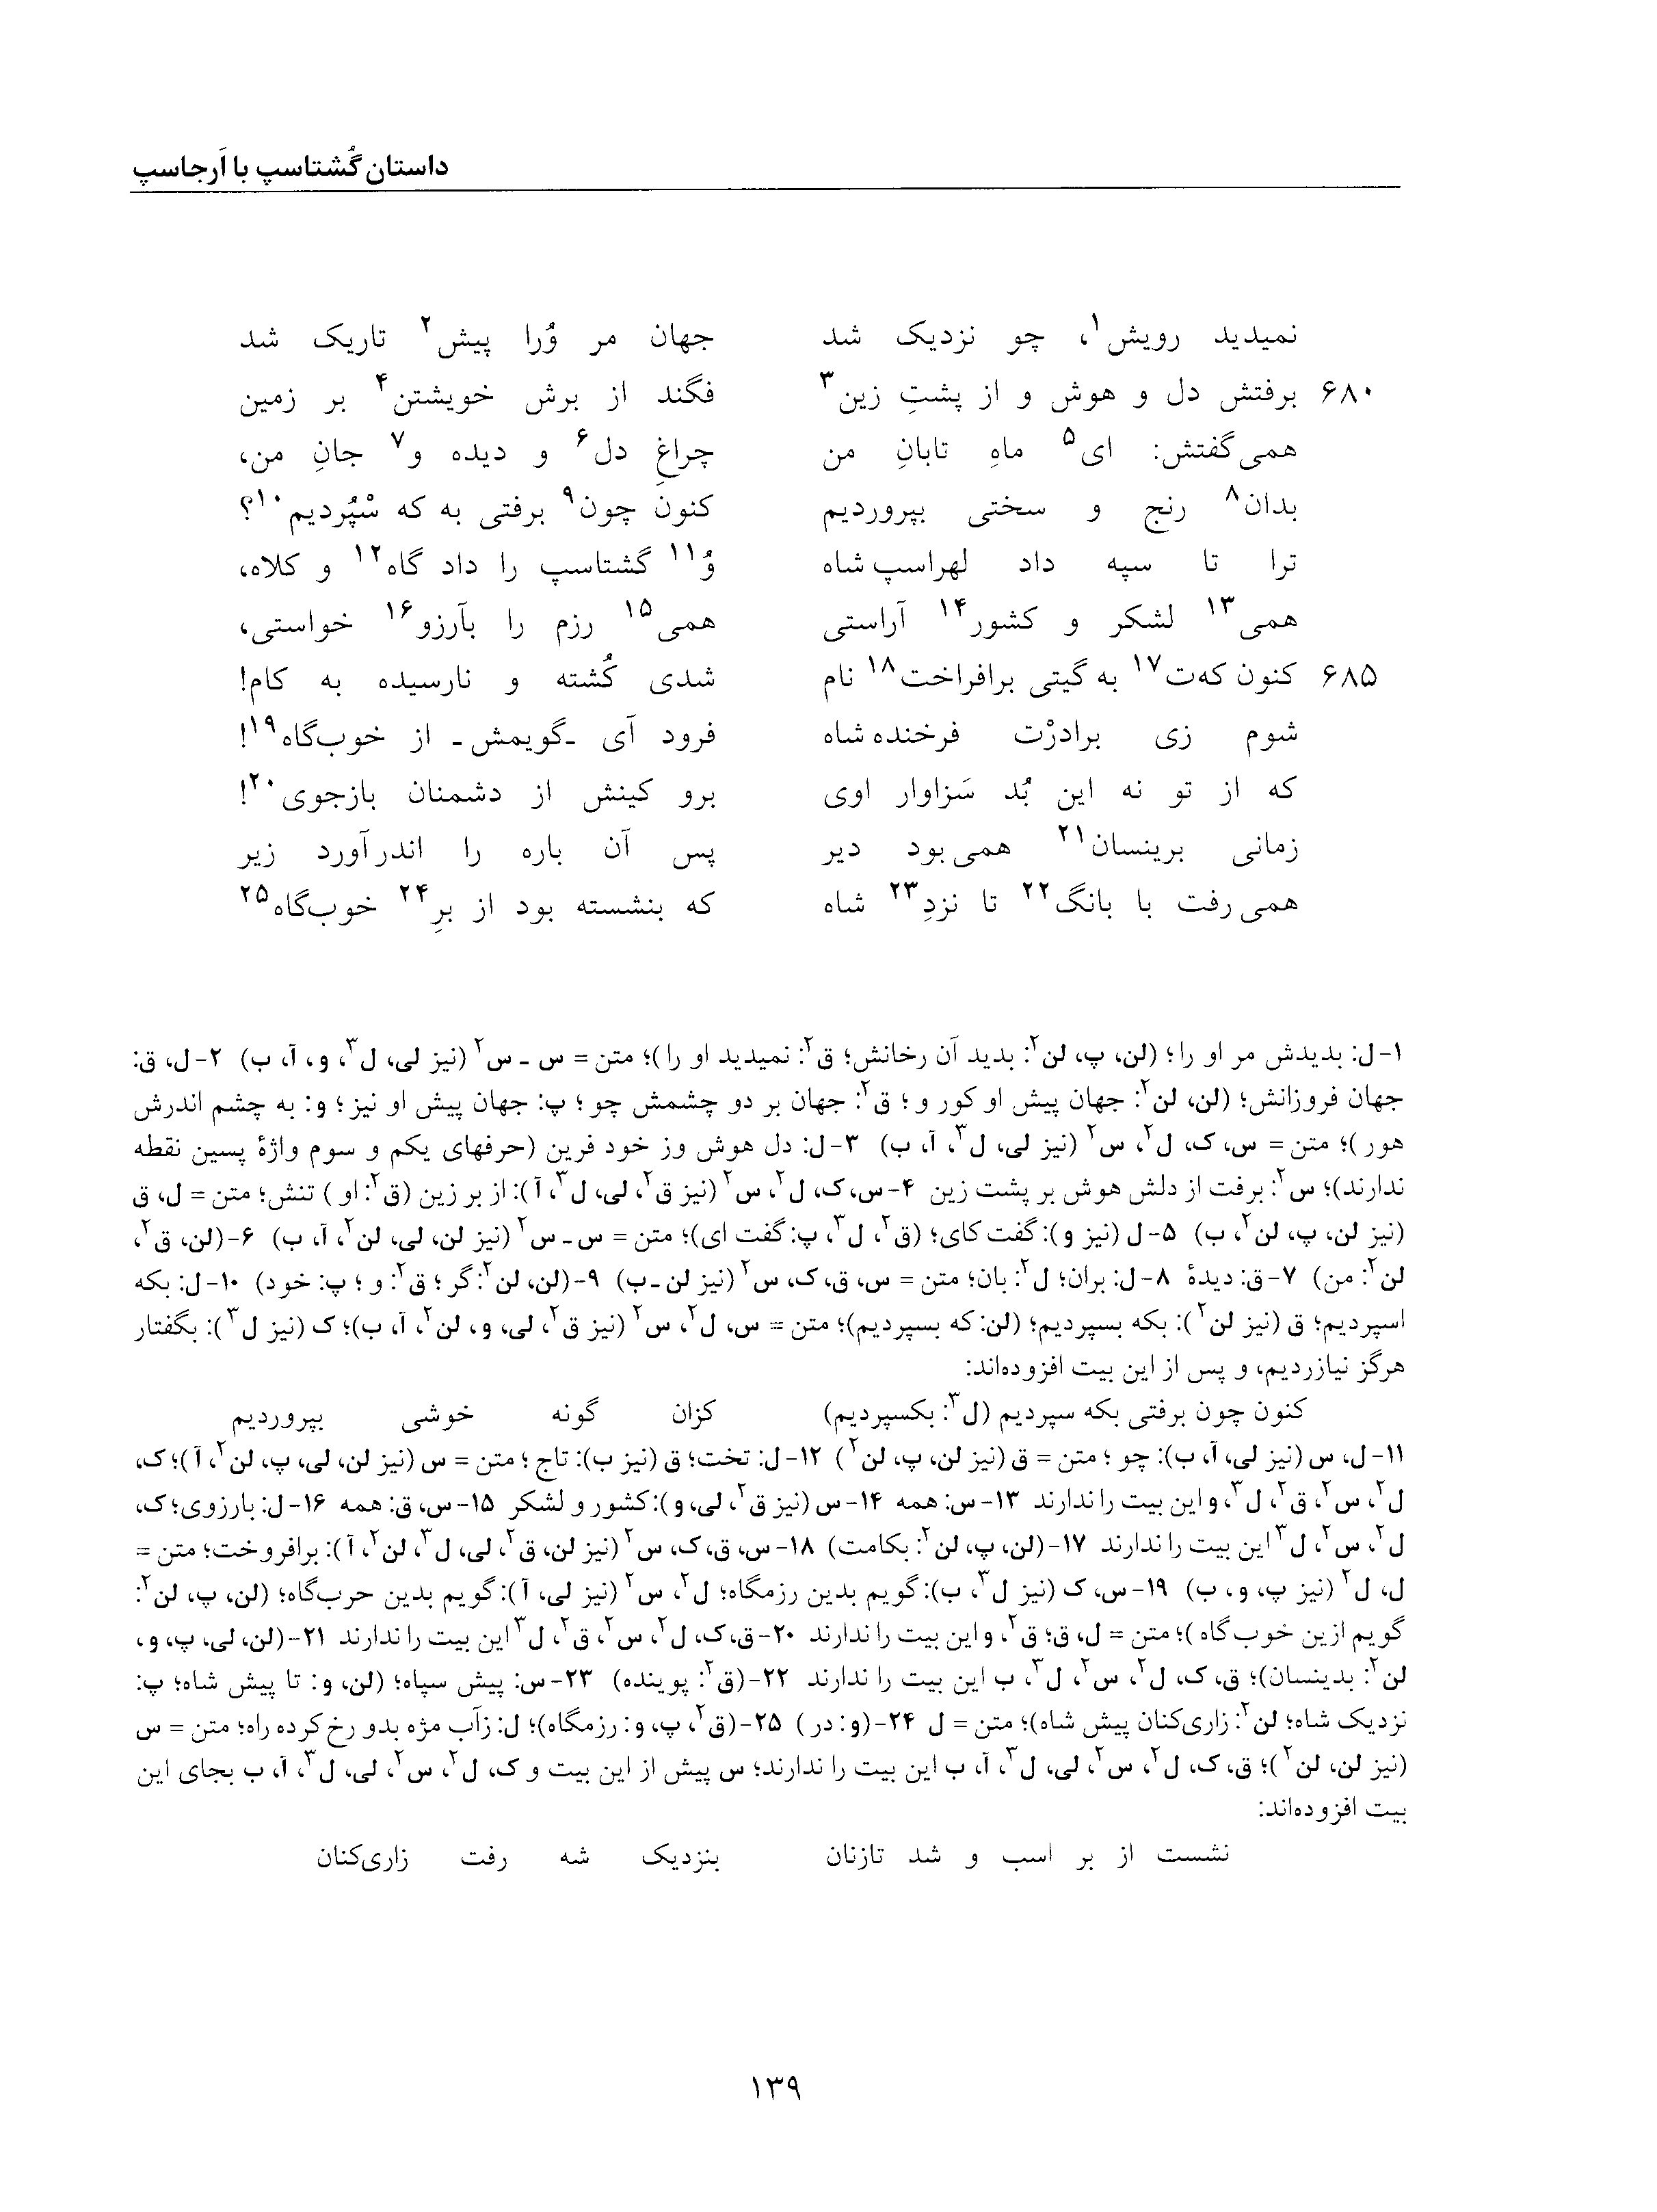 داستان گُشتاسپ با اَرجاسپ
نمیدید رویش۱، چو نزدیک شد جهان مر وُرا پیش۲ تاریک شد
۶۸۰ برفتش دل و هوش و از پشتِ زین۳ فگند از برش خویشتن۴ بر زمین
همی‌گفتش: ای۵ ماهِ تابانِ من چراغِ دل۶ و دیده و۷ جانِ من،
بدان۸ رنج و سختی بپروردیم کنون چون۹ برفتی به که سْپُردیم۱۰؟
ترا تا سپه داد لهراسپ‌شاه وُ۱۱ گشتاسپ را داد گاه۱۲ و کلاه،
همی۱۳ لشکر و کشور۱۴ آراستی همی۱۵ رزم را بآرزو۱۶ خواستی،
۶۸۵ کنون که‌ت۱۷ به گیتی برافراخت۱۸ نام شدی کُشته و نارسیده به کام!
شوم زی برادرْت فرخنده‌شاه فرود آی -گویمش- از خوب‌گاه۱۹!
که از تو نه این بُد سَزاوار اوی برو کینش از دشمنان بازجوی۲۰!
زمانی برینسان۲۱ همی‌بود دیر پس آن باره را اندرآورد زیر
همی‌رفت با بانگ۲۲ تا نزدِ۲۳ شاه که بنشسته بود از برِ۲۴ خوب‌گاه۲۵
۱-ل: بدیدش مر او را؛ (لن، پ، لن۲: بدید آن رخانش؛ ق۲: نمیدید او را)؛ متن = س ـ س۲ (نیز لی، ل۳، و، آ، ب) ۲-ل، ق:
جهان فروزانش؛ (لن، لن۲: جهان پیش او کور و؛ ق۲: جهان بر دو چشمش چو؛ پ: جهان پیش او نیز؛ و: به چشم اندرش
هور)؛ متن = س، ک، ل۲، س۲ (نیز لی، ل۳، آ، ب) ۳-ل: دل هوش وز خود فرین (حرفهای یکم و سوم واژهٔ پسین نقطه
ندارند)؛ س۲: برفت از دلش هوش بر پشت زین ۴-س، ک، ل۲، س۲ (نیز ق۲، لی، ل۳، آ): از بر زین (ق۲: او) تنش؛ متن = ل، ق
(نیز لن، پ، لن۲، ب) ۵-ل (نیز و): گفت کای؛ (ق۲، ل۳، پ: گفت ای)؛ متن = س ـ س۲ (نیز لن، لی، لن۲، آ، ب) ۶-(لن، ق۲،
لن۲: من) ۷-ق: دیدهٔ ۸-ل: بران؛ ل۲: بان؛ متن = س، ق، ک، س۲ (نیز لن ـ ب) ۹-(لن، لن۲: گر؛ ق۲: و؛ پ: خود) ۱۰-ل: بکه
اسپردیم؛ ق (نیز لن۲): بکه بسپردیم؛ (لن: که بسپردیم)؛ متن = س، ل۲، س۲ (نیز ق۲، لی، و، لن۲، آ، ب)؛ ک (نیز ل۳): بگفتار
هرگز نیازردیم، و پس از این بیت افزوده‌اند:
کنون چون برفتی بکه سپردیم (ل۳: بکسپردیم) کزان گونه خوشی بپروردیم
۱۱-ل، س (نیز لی، آ، ب): چو؛ متن = ق (نیز لن، پ، لن۲) ۱۲-ل: تخت؛ ق (نیز ب): تاج؛ متن = س (نیز لن، لی، پ، لن۲، آ)؛ ک،
ل۲، س۲، ق۲، ل۳، و این بیت را ندارند ۱۳-س: همه ۱۴-س (نیز ق۲، لی، و): کشور و لشکر ۱۵-س، ق: همه ۱۶-ل: بارزوی؛ ک،
ل۲، س۲، ل۳ این بیت را ندارند ۱۷-(لن، پ، لن۲: بکامت) ۱۸-س، ق، ک، س۲ (نیز لن، ق۲، لی، ل۳، لن۲، آ): برافروخت؛ متن =
ل، ل۲ (نیز پ، و، ب) ۱۹-س، ک (نیز ل۳، ب): گویم بدین رزمگاه؛ ل۲، س۲ (نیز لی، آ): گویم بدین حرب‌گاه؛ (لن، پ، لن۲:
گویم ازین خوب‌گاه)؛ متن = ل، ق؛ ق۲، و این بیت را ندارند ۲۰-ق، ک، ل۲، س۲، ق۲، ل۳ این بیت را ندارند ۲۱-(لن، لی، پ، و،
لن۲: بدینسان)؛ ق، ک، ل۲، س۲، ل۳، ب این بیت را ندارند ۲۲-(ق۲: پوینده) ۲۳-س: پیش سپاه؛ (لن، و: تا پیش شاه؛ پ:
نزدیک شاه؛ لن۲: زاری‌کنان پیش شاه)؛ متن = ل ۲۴-(و: در) ۲۵-(ق۲، پ، و: رزمگاه)؛ ل: زآب مژه بدو رخ کرده راه؛ متن = س
(نیز لن، لن۲)؛ ق، ک، ل۲، س۲، لی، ل۳، آ، ب این بیت را ندارند؛ س پیش از این بیت و ک، ل۲، س۲، لی، ل۳، آ، ب بجای این
بیت افزوده‌اند:
نشست از بر اسب و شد تازنان بنزدیک شه رفت زاری‌کنان
۱۳۹